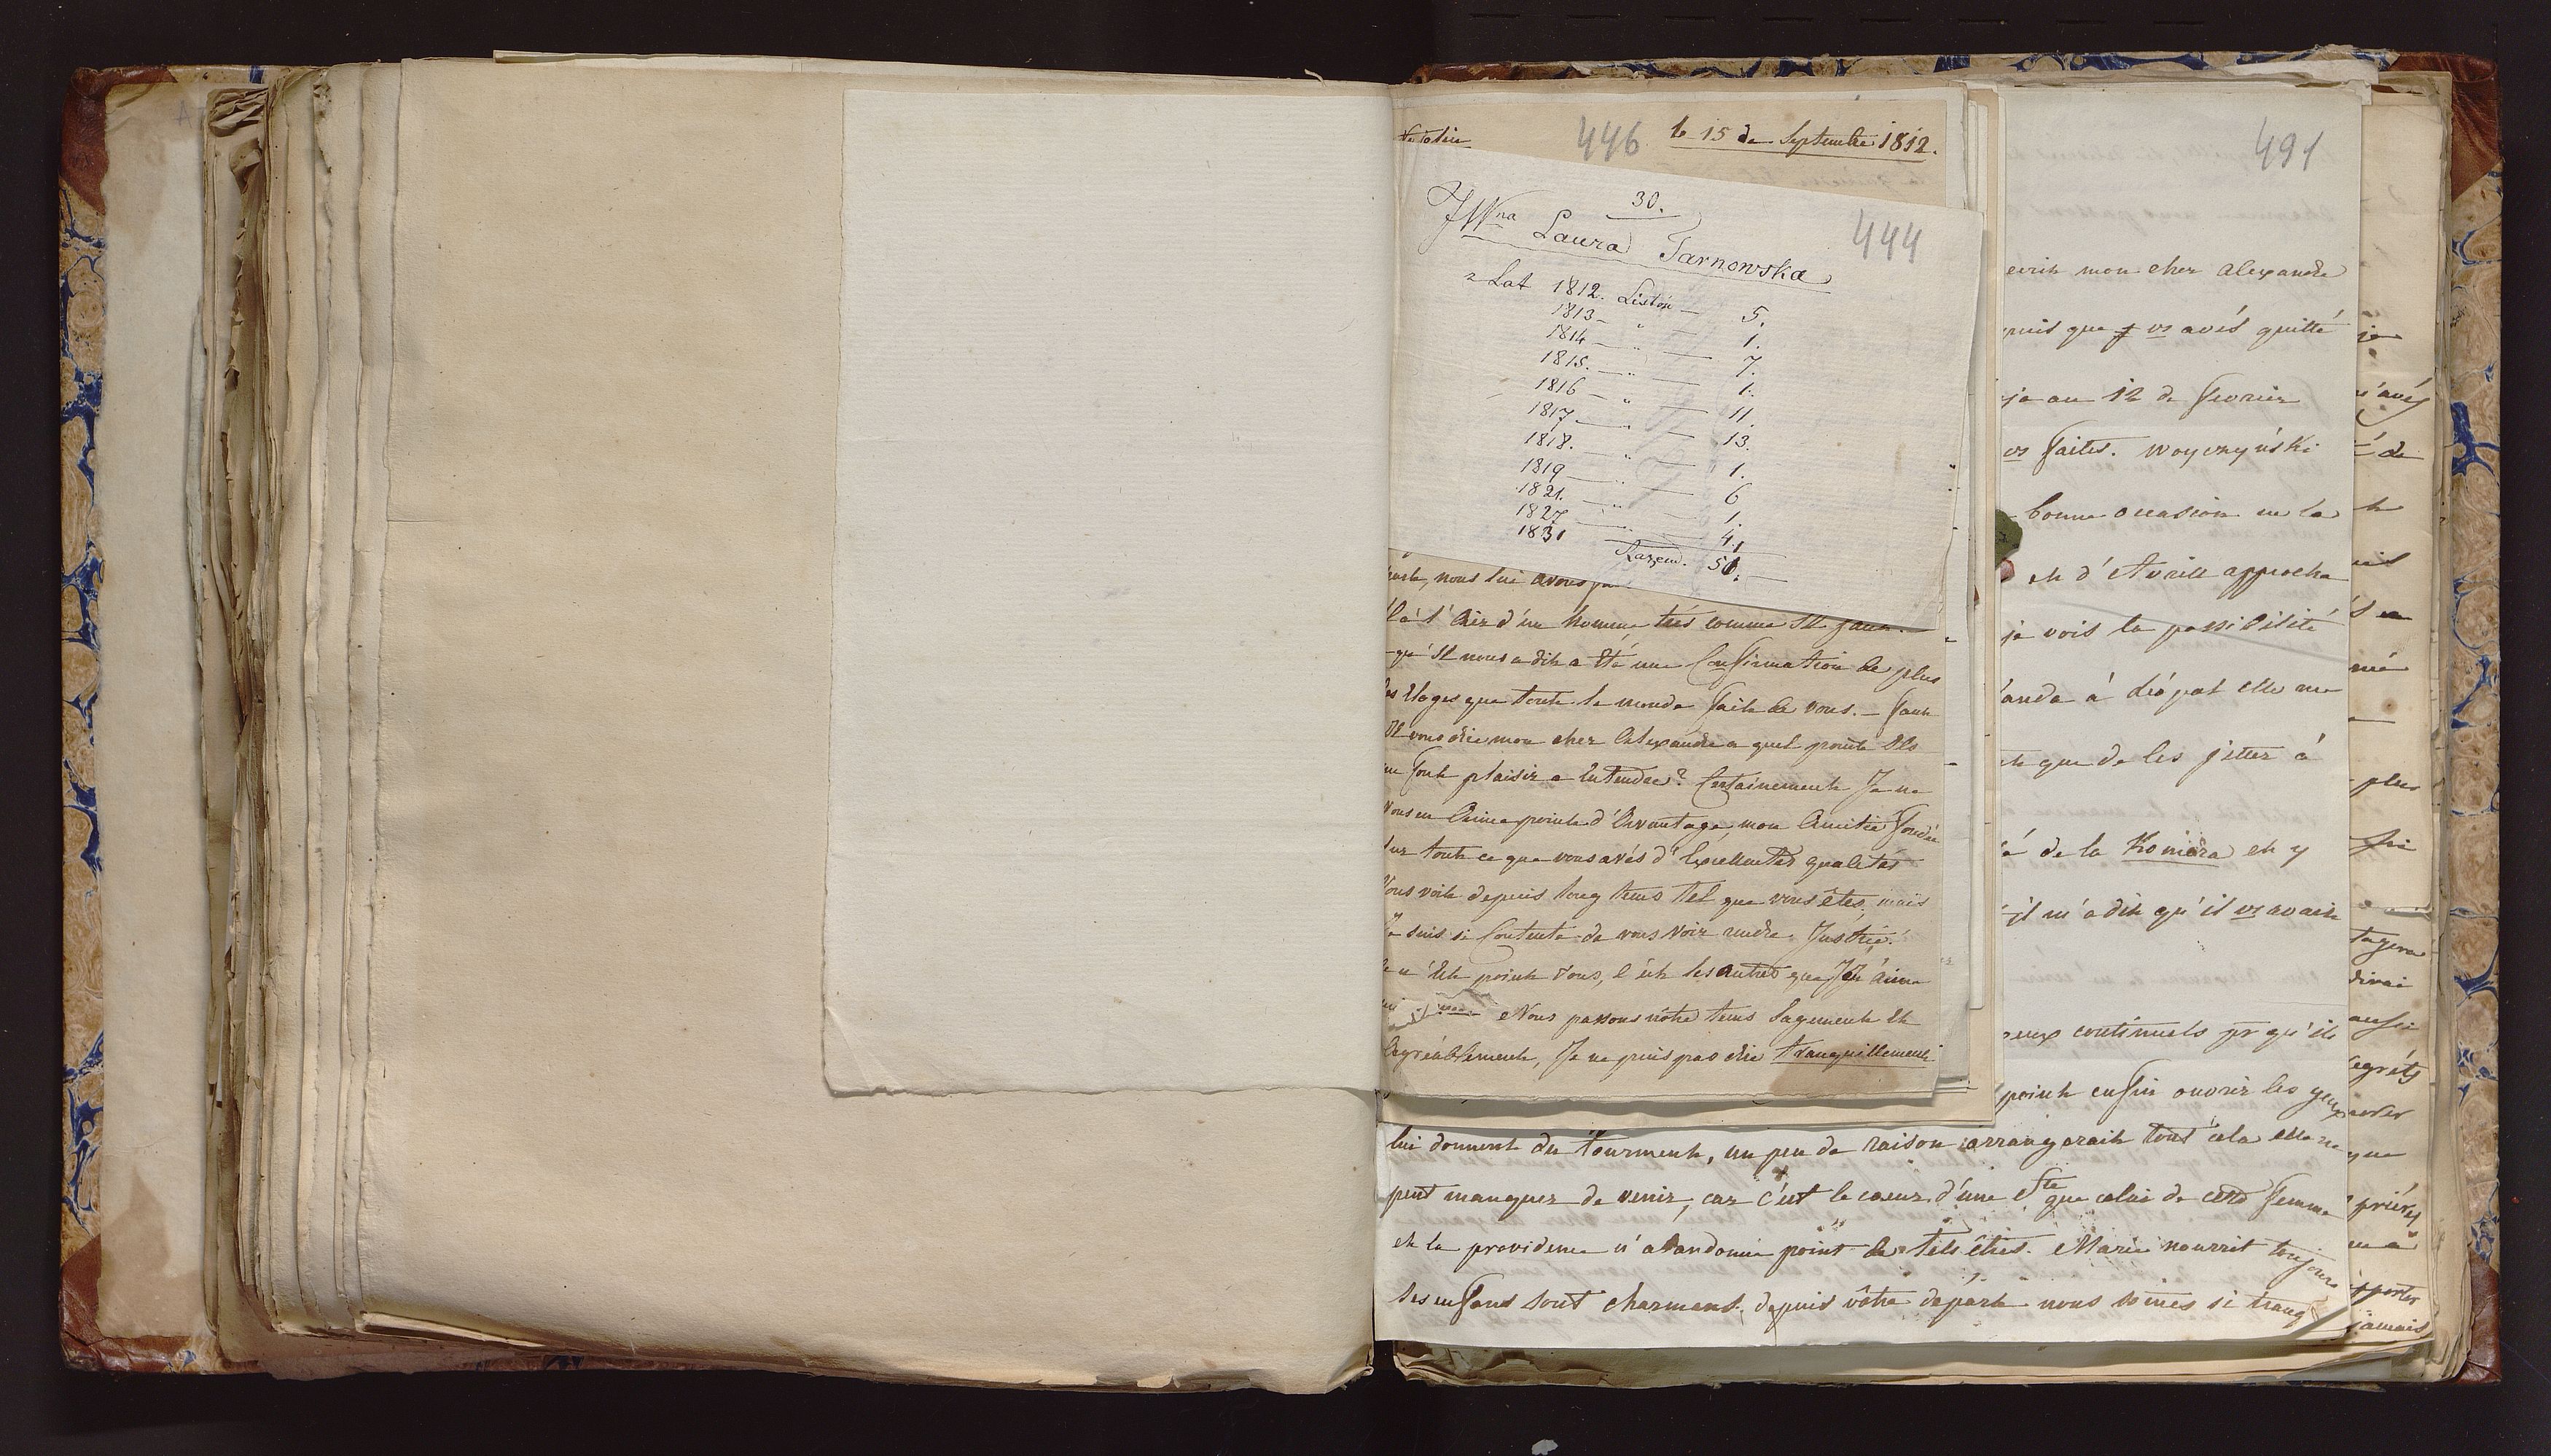 446 le 15 de Septembre 1812.
30.
444
JWna Laura Tarnowska
z Lat 1812. Listów — 5.
1813 — " — 1.
1814 — " — 7.
1815. — " — 1.
1816 — " — 11.
1817 — " — 13.
1818. — " — 1.
1819 — " — 6
1821. — " — 1.
1827 — " — 4.
1831 1
Razem. 51.
nous lui avons
l'air d'un homme très comme Il faut.
qu'Il nous a dit a Été une Confirmation de plus
Eloges que toute le monde fait de vous. — faut
Il vous dire mon cher Alexandre a quel point Ils
me font plaisir a Entendre? Certainement Je ne
vous en aime point d'Avantage, mon Amitié fondée
sur tout ce que vous avés d'Excellentes qualités
vous voit depuis long tems tel que vous êtes, mais
Je suis si Contente de vous voir rendre Justice.
ce n'Est point vous, c'est les autres que J'en aime
Nous passons nôtre tems Sagement Et
Agréablement, Je ne puis pas dire tranquillement
491
mon cher Alexandre
que vs avés quitté
au 12 de fevrier
vs faites. Woyczyński
bonne occasion en la
et d'Avrill approche
je vois la possibilité
à dépat elle me
que de les jetter à
de la Komora et y
il m'a dit qu'il vs avait
continuels pr qu'il
point enfin ouvrir les yeux
lui donnent du tourment, un peu de raison arrangerait tout cela elle ne
peut manquer de venir, car c'est le coeur d'une Ste que celui de cette femme
et la providence n'abandonne point de tels êtres. Marie nourrit toujours
Ses enfans sont charmans, depuis vôtre départ nous somes si tranq
je
de
plus
dirai
aussi
que
prières
jamais